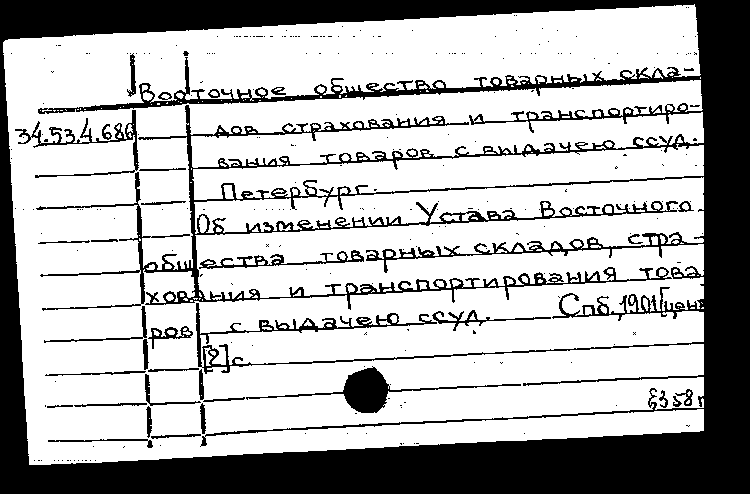 Восточное общество товарных скла-
34.53.4.686 дов страхования и транспортиро-
вания товаров с выдачею ссуд.
Петербург.
Об изменении Устава Восточного
общества товарных складов, стра-
хования и транспортирования това
ров, с выдачею ссуд. Спб., 1901 [ценз
[2] с.
6358